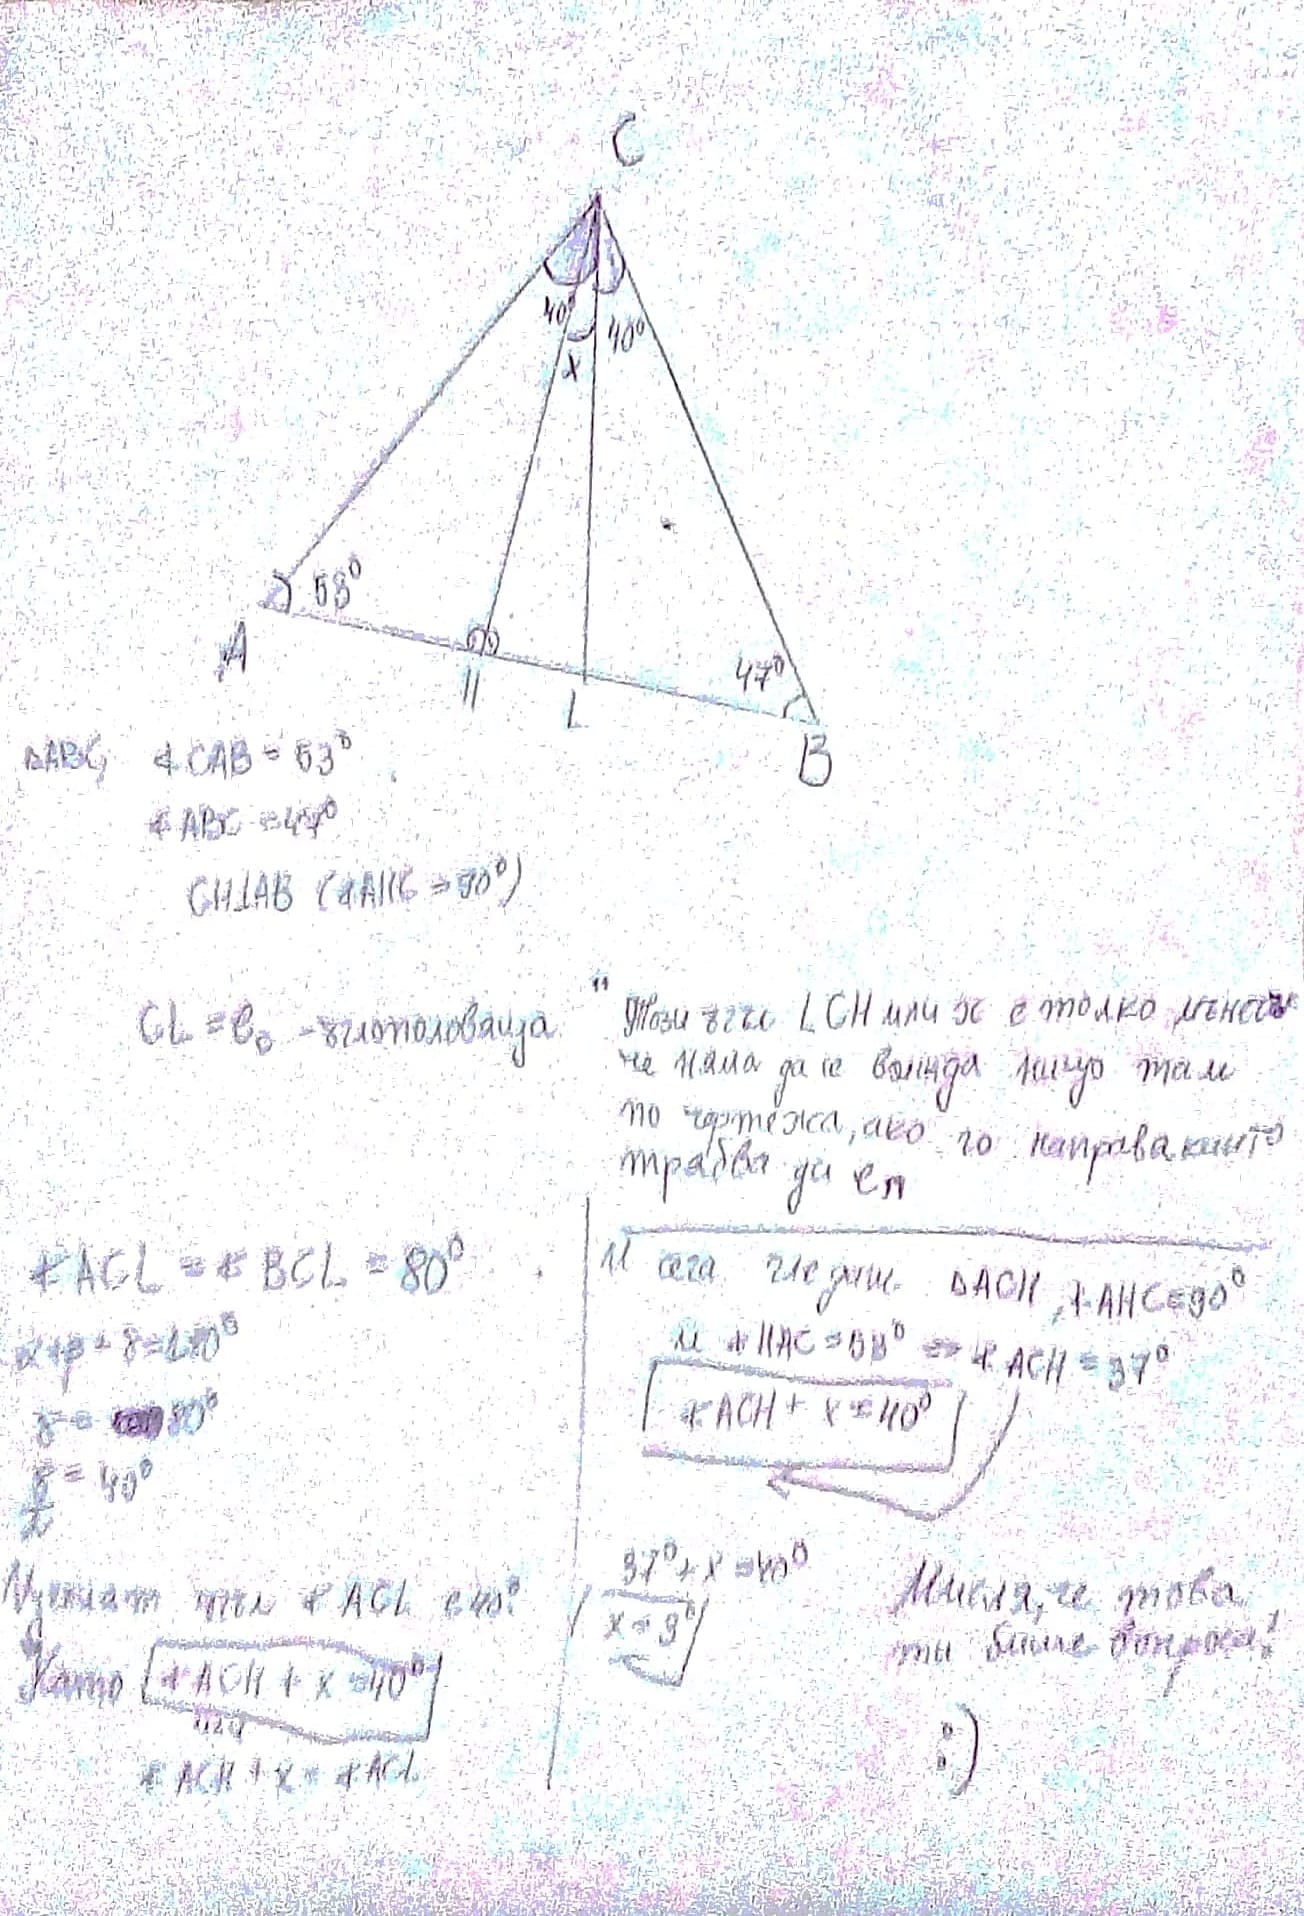 C
40°
x
40°
A
53°
H
L
47°
B
ΔABC, ∢CAB = 53°
∢ABC = 47°
CH⊥AB (∢AHC = 90°)
CL = ℓc - ъглополовяща
"Този ъгъл LCH или x е толко мъничък
че няма да се вижда нищо там
по чертежа, ако го направя както
трябва да е"
∢ACL = ∢BCL = 80°
α+β+γ=180°
γ = 80°
γ/2 = 40°
Целият ъгъл ∢ACL е 40°
Като ∢ACH + x = 40°
или
∢ACH + x = ∢ACL
И сега гледаш ΔACH, ∢AHC=90°
и ∢HAC = 53° => ∢ACH = 37°
∢ACH + x = 40°
37° + x = 40°
x = 3°
Мисля, че това
ти беше въпроса!
:)